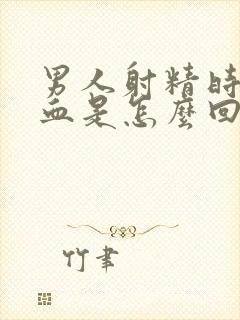 男人射精时
血是怎麼回
竹聿